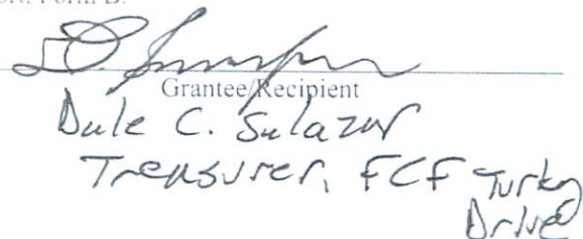 Form B.
Grantee/Recipient
Dale C. Salazar
Treasurer, FCF Turkey
Drive